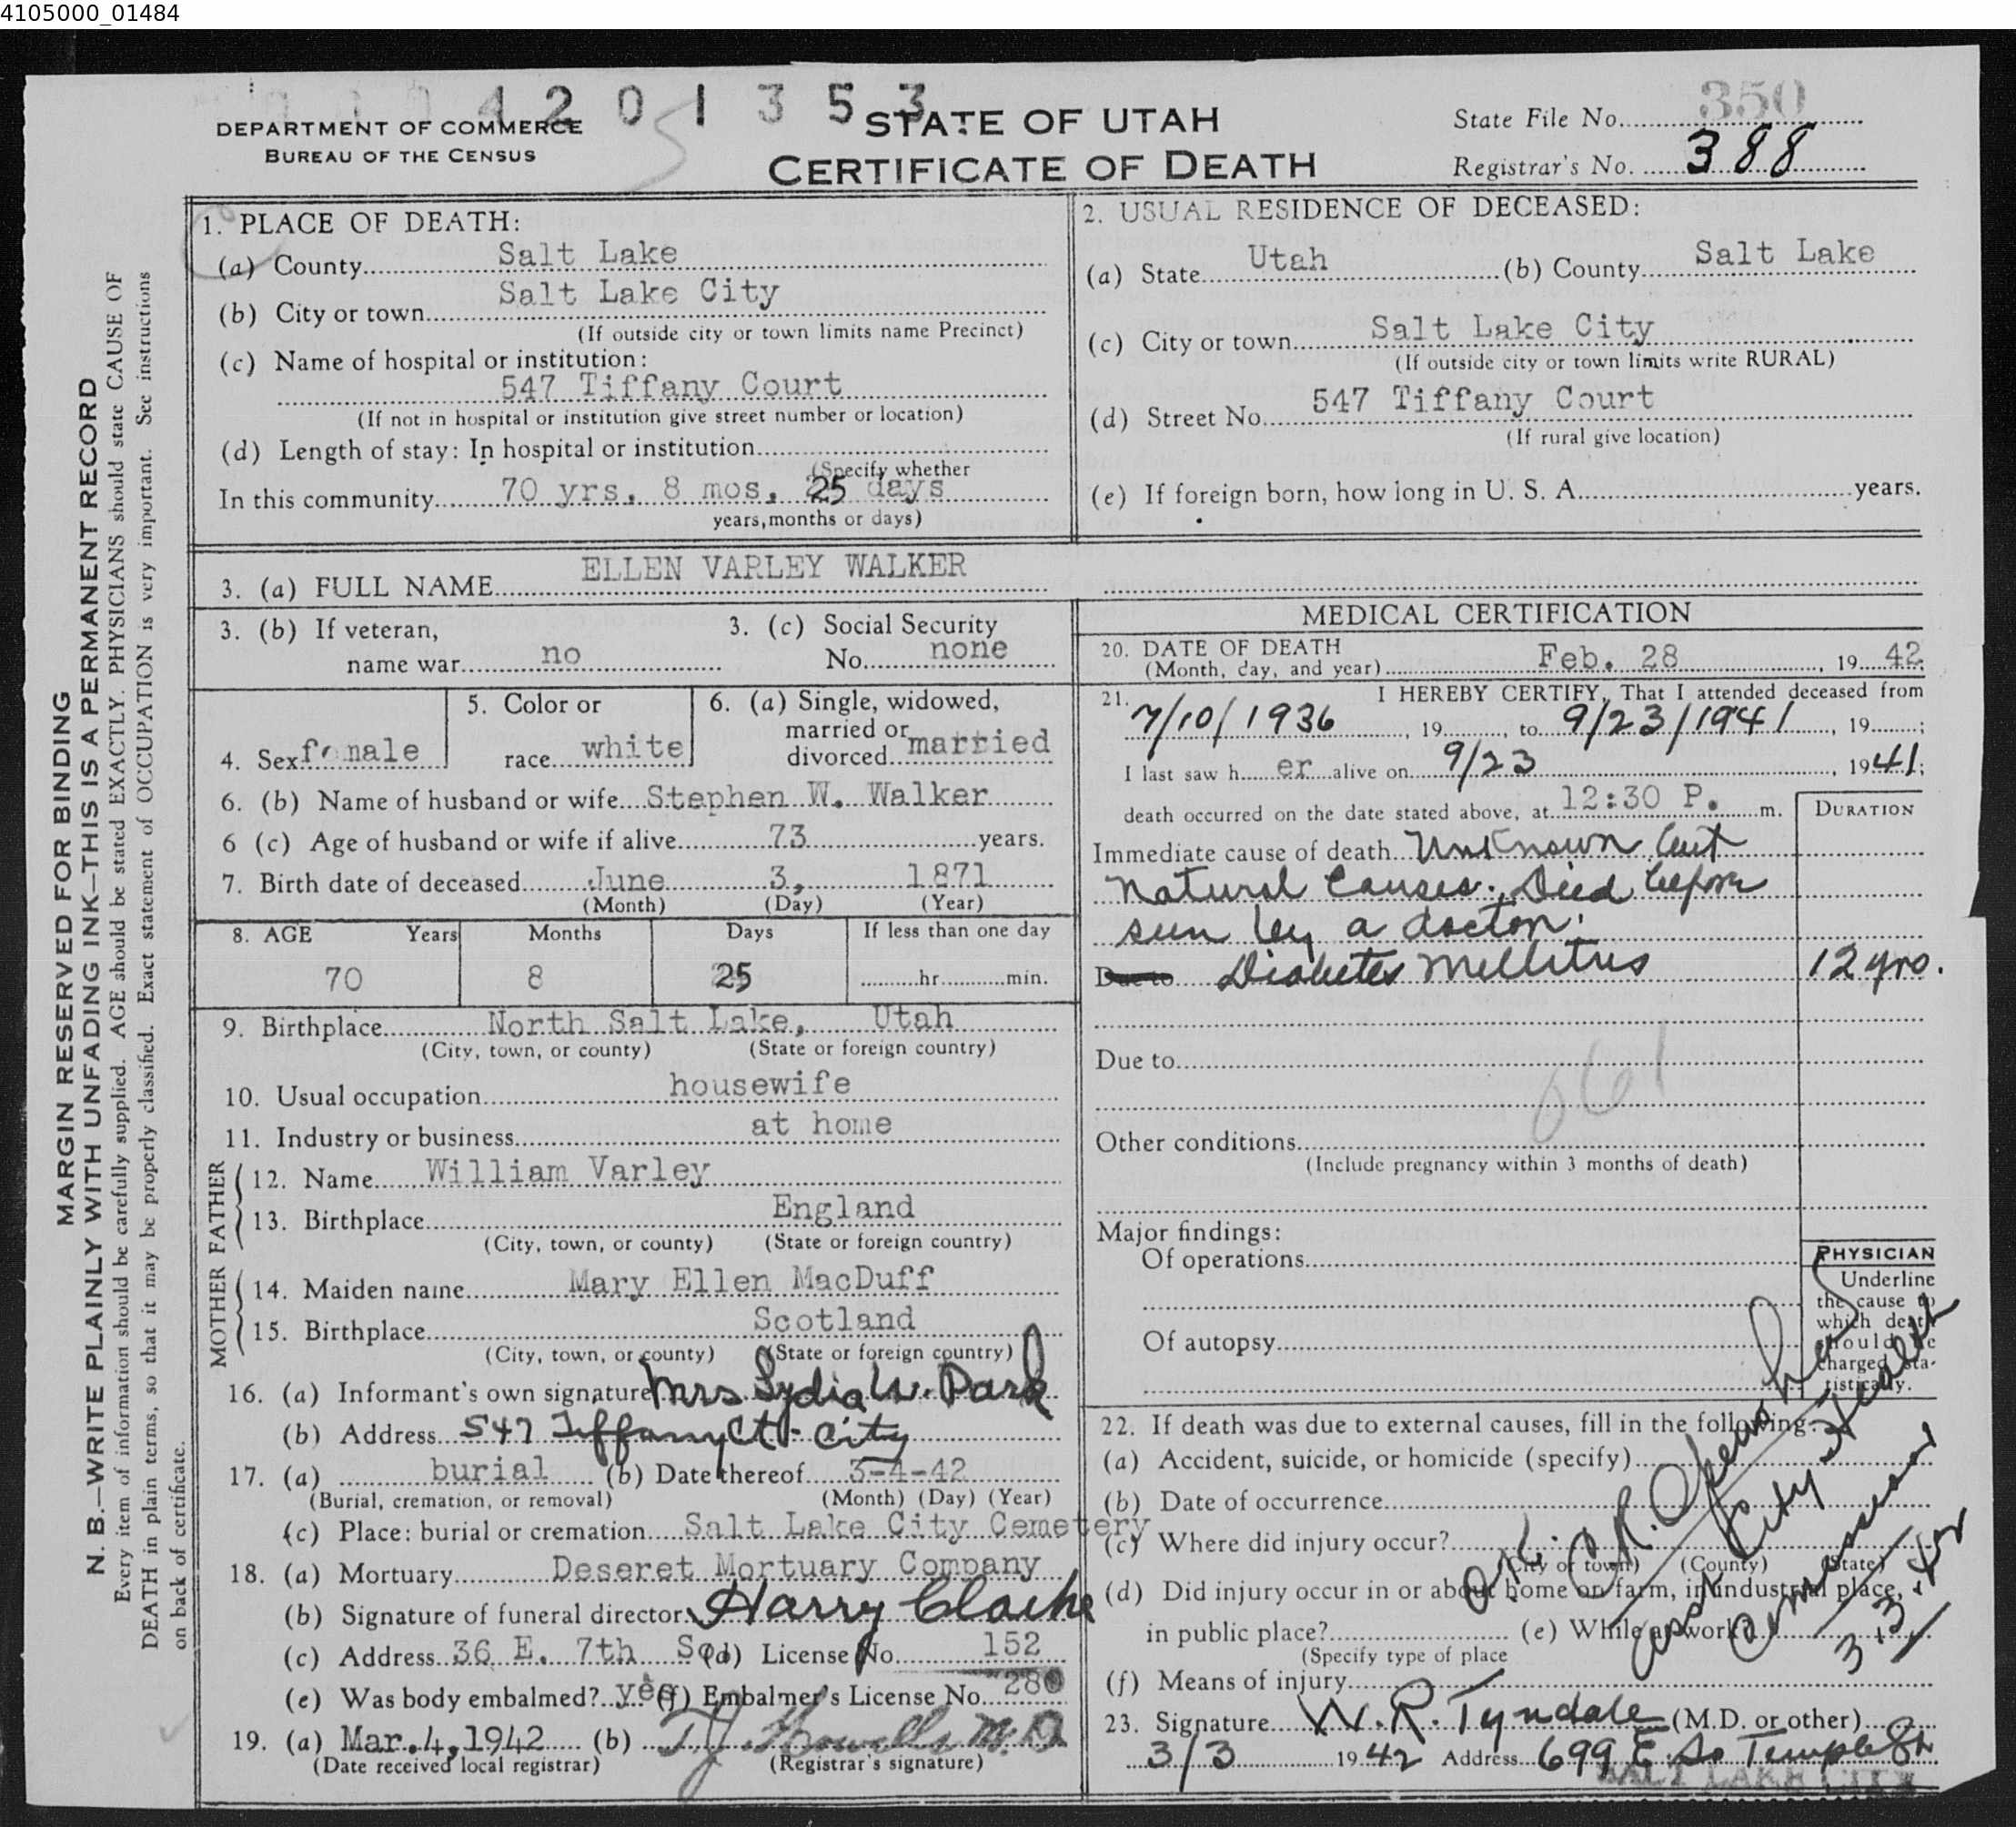 4105000_01484
4 2 0 1 3 5 3
DEPARTMENT OF COMMERCE
BUREAU OF THE CENSUS
STATE OF UTAH
CERTIFICATE OF DEATH
State File No. 350
Registrar's No. 388
MARGIN RESERVED FOR BINDING
N. B.—WRITE PLAINLY WITH UNFADING INK—THIS IS A PERMANENT RECORD
Every item of information should be carefully supplied. AGE should be stated EXACTLY. PHYSICIANS should state CAUSE OF
DEATH in plain terms, so that it may be properly classified. Exact statement of OCCUPATION is very important. See instructions
on back of certificate.
1. PLACE OF DEATH:
(a) County Salt Lake
(b) City or town Salt Lake City
(If outside city or town limits name Precinct)
(c) Name of hospital or institution:
547 Tiffany Court
(If not in hospital or institution give street number or location)
(d) Length of stay: In hospital or institution
(Specify whether
In this community 70 yrs. 8 mos. 25 days
years, months or days)
2. USUAL RESIDENCE OF DECEASED:
(a) State Utah (b) County Salt Lake
(c) City or town Salt Lake City
(If outside city or town limits write RURAL)
(d) Street No. 547 Tiffany Court
(If rural give location)
(e) If foreign born, how long in U. S. A. years.
3. (a) FULL NAME ELLEN VARLEY WALKER
3. (b) If veteran, name war no
3. (c) Social Security No. none
4. Sex female
5. Color or race white
6. (a) Single, widowed, married or divorced married
6. (b) Name of husband or wife Stephen W. Walker
6 (c) Age of husband or wife if alive 73 years.
7. Birth date of deceased June 3, 1871
(Month) (Day) (Year)
8. AGE Years Months Days If less than one day
70 8 25 hr. min.
9. Birthplace North Salt Lake, Utah
(City, town, or county) (State or foreign country)
10. Usual occupation housewife
11. Industry or business at home
FATHER
12. Name William Varley
13. Birthplace England
(City, town, or county) (State or foreign country)
MOTHER
14. Maiden name Mary Ellen MacDuff
15. Birthplace Scotland
(City, town, or county) (State or foreign country)
16. (a) Informant's own signature Mrs Lydia W. Park
(b) Address 547 Tiffany Ct - City
17. (a) burial (b) Date thereof 3-4-42
(Burial, cremation, or removal) (Month) (Day) (Year)
(c) Place: burial or cremation Salt Lake City Cemetery
18. (a) Mortuary Deseret Mortuary Company
(b) Signature of funeral director Harry Clarke
(c) Address 36 E. 7th So. (d) License No. 152
(e) Was body embalmed? yes (f) Embalmer's License No. 280
19. (a) Mar. 4, 1942 (b) T.J. Howells M.D.
(Date received local registrar) (Registrar's signature)
MEDICAL CERTIFICATION
20. DATE OF DEATH
(Month, day, and year) Feb. 28, 19 42
21. I HEREBY CERTIFY, That I attended deceased from
7/10/1936, 19 , to 9/23/1941, 19 ;
I last saw her alive on 9/23, 1941;
death occurred on the date stated above, at 12:30 P. m.
DURATION
Immediate cause of death Unknown but
natural causes. Died before
seen by a doctor.
Due to Diabetes Mellitus 12 yrs.
Due to
061
Other conditions
(Include pregnancy within 3 months of death)
Major findings:
Of operations
Of autopsy
PHYSICIAN
Underline
the cause to
which death
should be
charged sta-
tistically.
22. If death was due to external causes, fill in the following:
(a) Accident, suicide, or homicide (specify)
(b) Date of occurrence
(c) Where did injury occur?
(City or town) (County) (State)
(d) Did injury occur in or about home or farm, in industrial place,
in public place? (e) While at work?
(Specify type of place
(f) Means of injury
O.K.
Asst City Health
Commissioner
3-3-42
23. Signature W. R. Tyndale (M.D. or other)
3/3 1942 Address 699 E So Temple St
SALT LAKE CITY